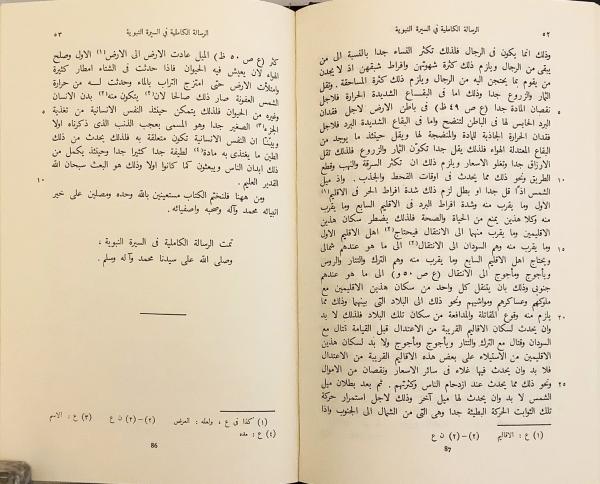 ٥٢ الرسالة الكاملية في السيرة النبوية
وذلك انما يكون فى الرجال فلذلك تكثر النساء جدا بالنسبة الى من
يبقى من الرجال ويلزم ذلك كثرة شهوتهن وافراط شبقهن اذ لا يجدن
من يقوم بما يحتجن اليه من الرجال ويلزم ذلك كثرة المساحقة. وتقل
الثمار والزروع جدا وذلك اما فى البقاع الشديدة الحرارة فلاجل
نقصان المادة جدا (ع ص ٤٩ ظ) فى باطن الارض لاجل فقدان
البرد الحابس لها فى الباطن لتنضج واما فى الشديدة البرد فلاجل
فقدان الحرارة الجاذبة للمادة والمنضجة لها ويقل حينئذ ما يوجد من
البقاع المعتدلة الهواء فلذلك يقل جدا تكوّن الثمار والزروع فلذلك تقل
الارزاق جدا وتغلو الاسعار ويلزم ذلك ان تكثر السرقة والنهب وقطع
الطريق ونحو ذلك مما يحدث فى اوقات القحط والجدب. واما ميل ١٠
الشمس اذا قل جدا او بطل لزم ذلك شدة افراط الحر فى الاقليم(١)
الاول وما يقرب منه وشدة افراط البرد فى الاقليم السابع وما يقرب
منه وكلا هذين يمنع من الحياة والصحة فلذلك يضطر سكان هذين
الاقليمين وما يقرب منهما الى الانتقال فيحتاج(٢) اهل الاقليم الاول
وما يقرب منه وهم السودان الى الانتقال(٢) الى ما هو عندهم شمالى ١٥
ويحتاج اهل الاقليم السابع وما يقرب منه وهم الترك والتتار والروس
ويأجوج ومأجوج الى الانتقال (ع ص ٥٠ و) الى ما هو عندهم
جنوبى وذلك بان ينتقل كل واحد من سكان هذين الاقليمين مع
ملوكهم وعساكرهم ومواشيهم ونحو ذلك الى البلاد التى بينهما وذلك مما
يلزم منه وقوع المقاتلة والمدافعة من سكان تلك البلاد فلذلك لا بد ٢٠
وان يحدث لسكان الاقاليم القريبة من الاعتدال قبل القيامة قتال مع
السودان وقتال مع الترك والتتار ويأجوج ومأجوج ولا بد لسكان هذين
الاقليمين من الاستيلاء على بعض هذه الاقاليم القريبة من الاعتدال
فلا بد وان يحدث فيها غلاء فى سائر الاسعار ونقصان من الاموال
ونحو ذلك مما يحدث عند ازدحام الناس وكثرتهم. ثم بعد بطلان ميل ٢٥
الشمس لا بد وان يحدث لها ميل آخر وذلك لاجل استمرار حركة
تلك الثوابت الحركة البطيئة جدا وهى التى من الشمال الى الجنوب واذا
(١) ع : الاقاليم (٢) – (٢) ن ع
87
الرسالة الكاملية في السيرة النبوية ٥٣
كثر (ع ص ٥٠ ظ) الميل عادت الارض الى الارض(١) الاول وصلح
الهواء لان يعيش فيه الحيوان فاذا حدثت فى الشتاء امطار كثيرة
وامتلأت الارض حتى امتزج التراب بالماء وحدثت له من حرارة
الشمس العفونة صار ذلك صالحا لان (٢) يتكون منه(٢) بدن الانسان
وغيره من الحيوان فلذلك يتمكن حينئذ النفس الانسانية من تغذية ٥
الجزء(٣) الصغير جدا وهو المسمى بعجب الذنب الذى ذكرناه اولا
وبيّنّا ان النفس الانسانية تكون متعلقة به فلذلك يحدث من ذلك
الطين ما يغتذى به مادة(٤) لطيفة جدا كثيرا جدا وحينئذ يكمل من
ذلك ابدان الناس ويبعثون كما كانوا اولا وذلك هو البعث سبحان الله
القدير العليم. ١٠
ومن ههنا فلنختم الكتاب مستعينين بالله وحده ومصلين على خير
انبيائه محمد وآله وصحبه واصفيائه.
تمت الرسالة الكاملية فى السيرة النبوية ،
وصلى الله على سيدنا محمد وآله وسلم.
(١) كذا فى ع ، ولعله : العرض (٢) – (٢) ن ع (٣) ع : الاسم
(٤) ع : مده
86